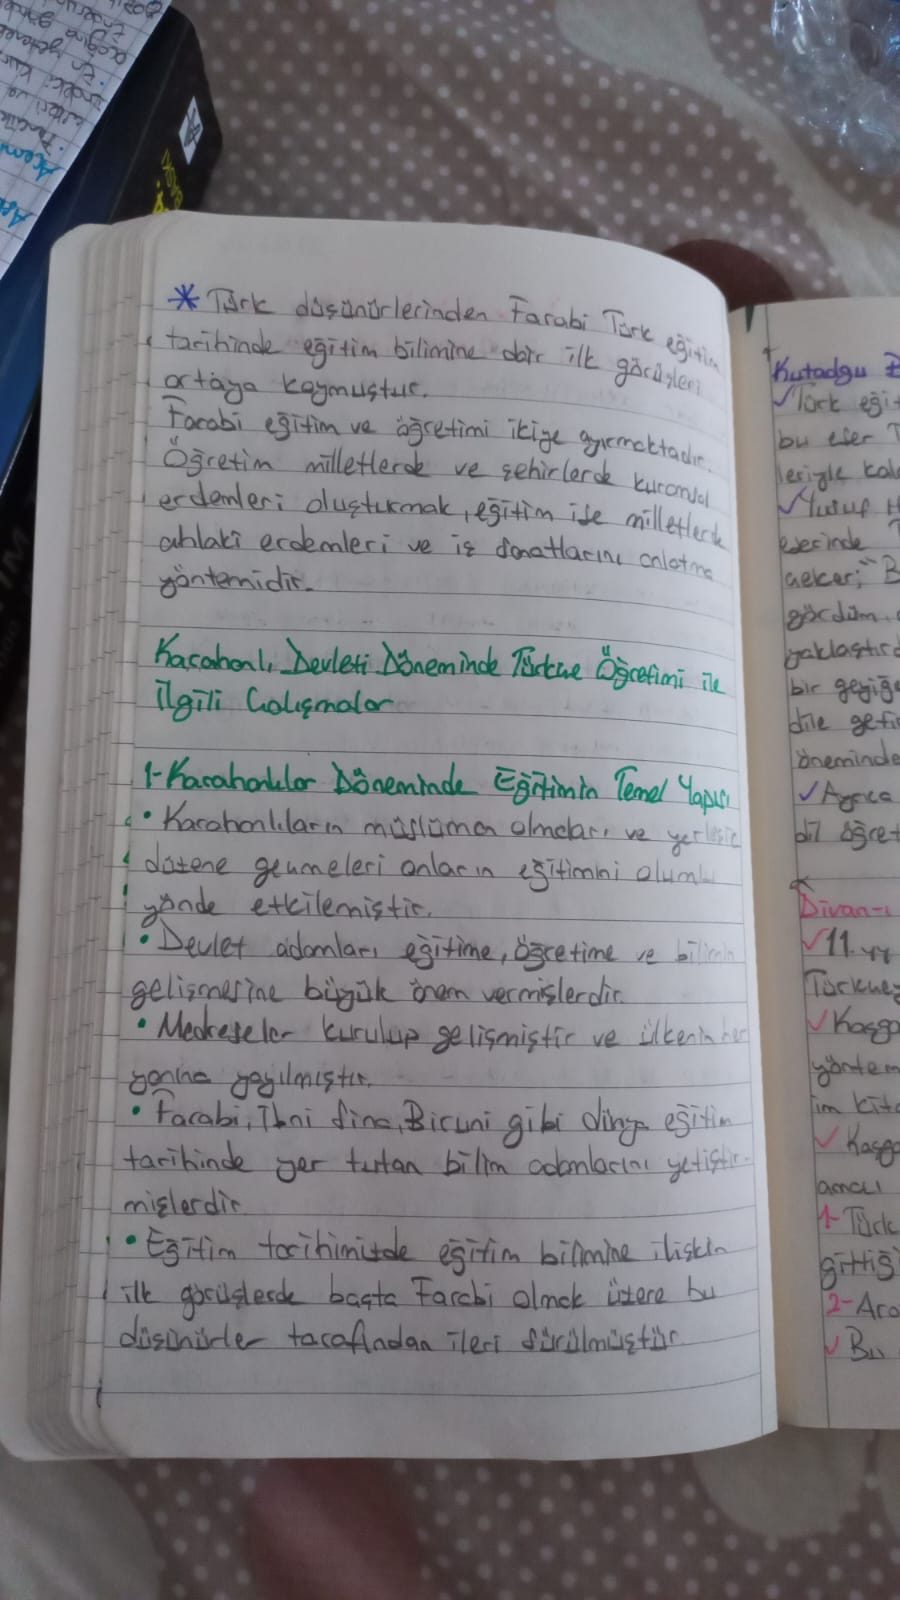 * Türk düşünürlerinden Farabi Türk eğitim
tarihinde eğitim bilimine dair ilk görüşleri
ortaya koymuştur.
Farabi eğitim ve öğretimi ikiye ayırmaktadır.
Öğretim milletlerde ve şehirlerde kuramsal
erdemleri oluşturmak, eğitim ise milletlerde
ahlaki erdemleri ve iş sanatlarını anlatma
yöntemidir.
Karahanlı Devleti Döneminde Türkçe Öğretimi ile
İlgili Çalışmalar
1-Karahanlılar Döneminde Eğitimin Temel Yapısı
• Karahanlıların müslüman olmaları ve yerleşik
düzene geçmeleri onların eğitimini olumlu
yönde etkilemiştir.
• Devlet adamları eğitime, öğretime ve bilimin
gelişmesine büyük önem vermişlerdir.
• Medreseler kurulup gelişmiştir ve ülkenin her
yanına yayılmıştır.
• Farabi, İbni Sina, Biruni gibi dünya eğitim
tarihinde yer tutan bilim adamlarını yetiştir-
mişlerdir
• Eğitim tarihimizde eğitim bilimine ilişkin
ilk görüşlerde başta Farabi olmak üzere bu
düşünürler tarafından ileri sürülmüştür.
Kutadgu B
✓Türk eğit
bu eser T
leriyle kal
✓Yusuf H
eserinde T
çeker; "B
gördüm,
yaklaştırd
bir geyiğe
dile getir
öneminde
✓Ayrıca
dil öğret
Divan-ı
✓11. yy
Türkçey
✓Kaşga
yöntem
im kita
✓Kaşga
amacı
1-Türk
gittiğ
2-Ara
✓Bu